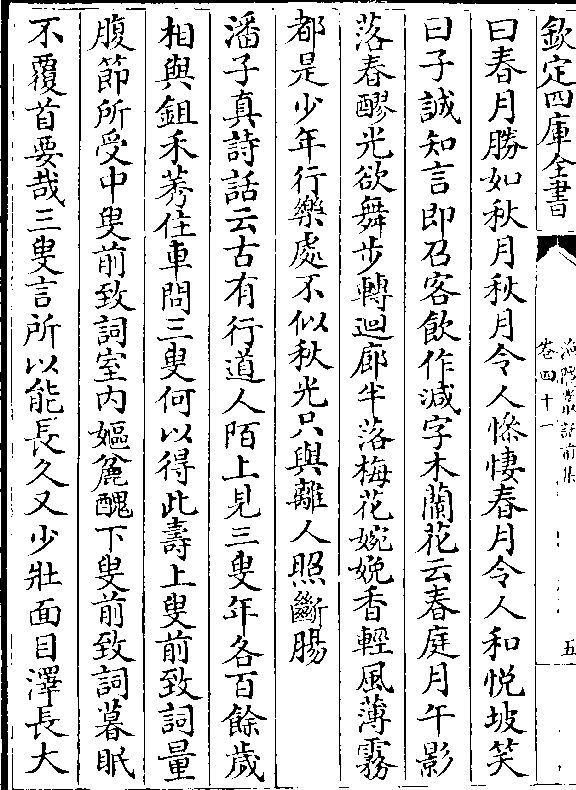 欽定四庫全書
漁隱叢話前集
卷四十一
五
曰春月勝如秋月秋月令人慘悽春月令人和悅坡笑
曰子誠知言即召客飲作減字木蘭花云春庭月午影
落春醪光欲舞步轉迴廊半落梅花婉娩香輕風薄霧
都是少年行樂處不似秋光只與離人照斷腸
潘子真詩話云古有行道人陌上見三叟年各百餘歲
相與鉏禾莠住車問三叟何以得此壽上叟前致詞量
腹節所受中叟前致詞室內嫗麄醜下叟前致詞暮眠
不覆首要哉三叟言所以能長久又少壯面目澤長大